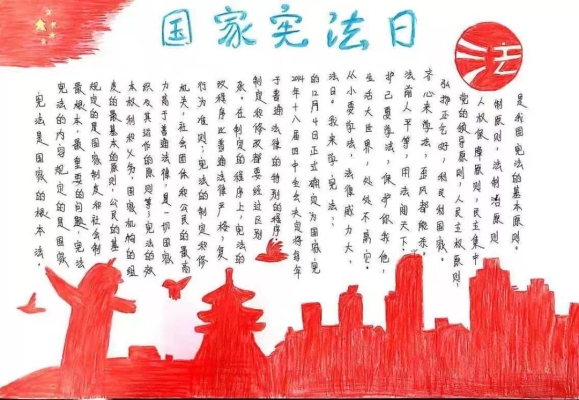 国家宪法日
法
宪法是国家的根本法。
宪法的内容规定的是国家
最根本、最重要的问题,宪法
规定的是国家制度和社会制
度的最基本的原则,公民的基
本权利和义务,国家机构的组
织及其运作的原则等;宪法的效
力高于普通法律,是一切国家
机关、社会团体和公民的最高
行为准则;宪法的制定和修
改程序比普通法律严格,复
杂。在制定的程序上,宪法的
制定和修改都要经过区别
于普通法律的特别的程序。
2014年十八届四中全会决定将每年
的12月4日正式确定为国家宪
法日。我来学宪法:
从小要学法,法律威力大,
生活大世界,处处不离它。
护己要学法,保护你我他,
法前人平等,用法闯天下。
齐心来学法,歪风都能杀。
弘扬正气好,利民利国家。
党的领导原则,人民主权原则,
人权保障原则,民主集中
制原则,法制治原则
是我国宪法的基本原则。